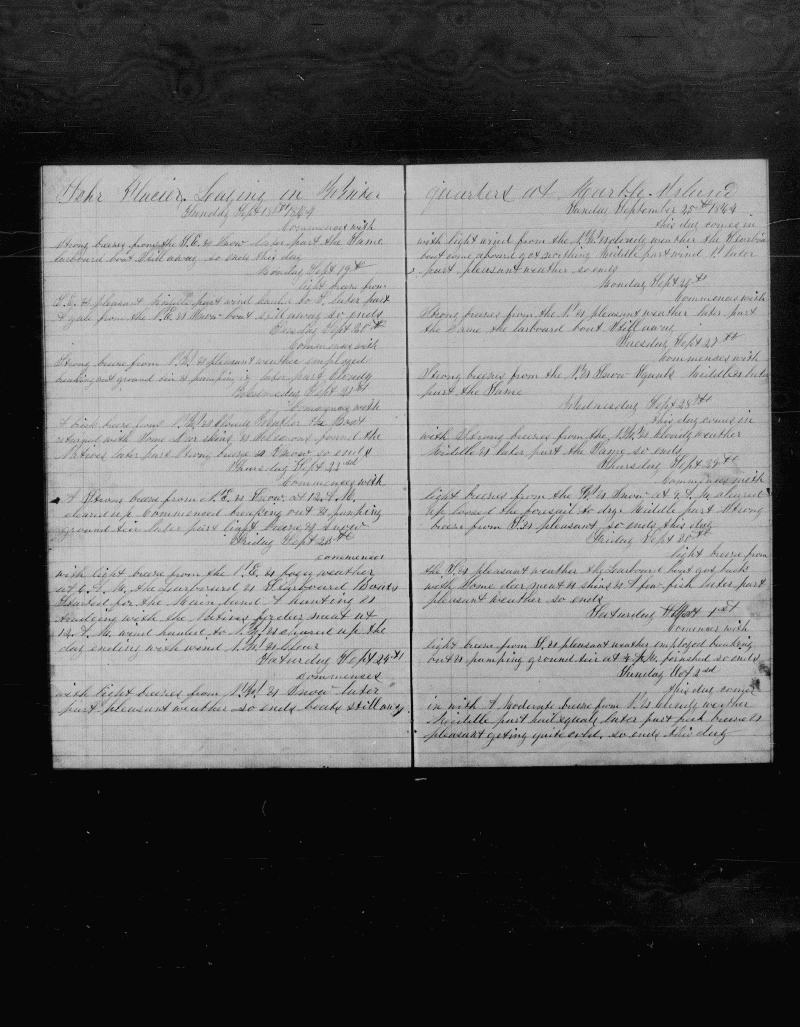 Bark Glacier Laying in Winter
Sunday Sept 18th 1864
Commences with
Strong breeze from the S.E. & Snow later part the Same
larboard boat Still away so ends this day
Monday Sept 19th
light breeze from
S.E. & pleasant Middle part wind hauled to E. later part
A gale from the N.E. & Snow boat still away so ends
Tuesday Sept 20th
Commences with
Strong breeze from N.W. & pleasant weather employed
breaking out ground tier & pumping it later part cloudy
Wednesday Sept 21st
Commences with
A brisk breeze from N.W. & Cloudy the Boat
returned with Some Deer skins & found the
Natives later part Strong breeze & Snow so ends
Thursday Sept 22nd
Commences with
A Strong breeze from N.E. & Snow at 12 A.M.
cleared up Commenced breaking out & pumping
ground tier later part light breeze & Snow
Friday Sept 23th
commences
with light breeze from the N.E. & fogey weather
at 6 A.M. the Larboard & Starboard Boats
Started for the Main land A hunting &
trading with the Natives for deer meat at
12 A.M. wind hauled to N.W. & cleared up the
day ending with wind N.W. & Clear
Saturday Sept 24th
commences
with light breezes from N.W. & Snow later
part pleasant weather so ends boats still away
quarters at Marble Island
Sunday September 25th 1864
this day comes in
with light wind from the N.W. & cloudy weather the Starboard
boat come aboard got nothing Middle part wind N. later
part pleasant weather so ends
Monday Sept 26th
Commences with
Strong breezes from the N. & pleasant weather later part
the Same the larboard boat Still away
Tuesday Sept 27th
Commences with
Strong breezes from the N. & Snow Squals Middle & later
part the Same
Wednesday Sept 28th
this day comes in
with Strong breezes from the N.W. & Cloudy weather
Middle & later part the Same so ends
Thursday Sept 29th
Commences with
light breezes from the W. & Snow at 9 A.M. cleared
up loosed the foresail to dry Middle part Strong
breeze from S. & pleasant, so ends this day
Friday Sept 30th
light breeze from
the S. & pleasant weather the Larboard boat got back
with Some deer meat & skins & A few fish later part
pleasant weather so ends
Saturday Oct 1st
Commences with
light breeze from S. & pleasant weather employed breaking
out & pumping ground tier at 4 P.M. finished so ends
Sunday Oct 2nd
this day comes
in with A Moderate breeze from N. & Cloudy weather
Middle part hail squals later part fresh breeze &
pleasant geting quite cold. so ends this day